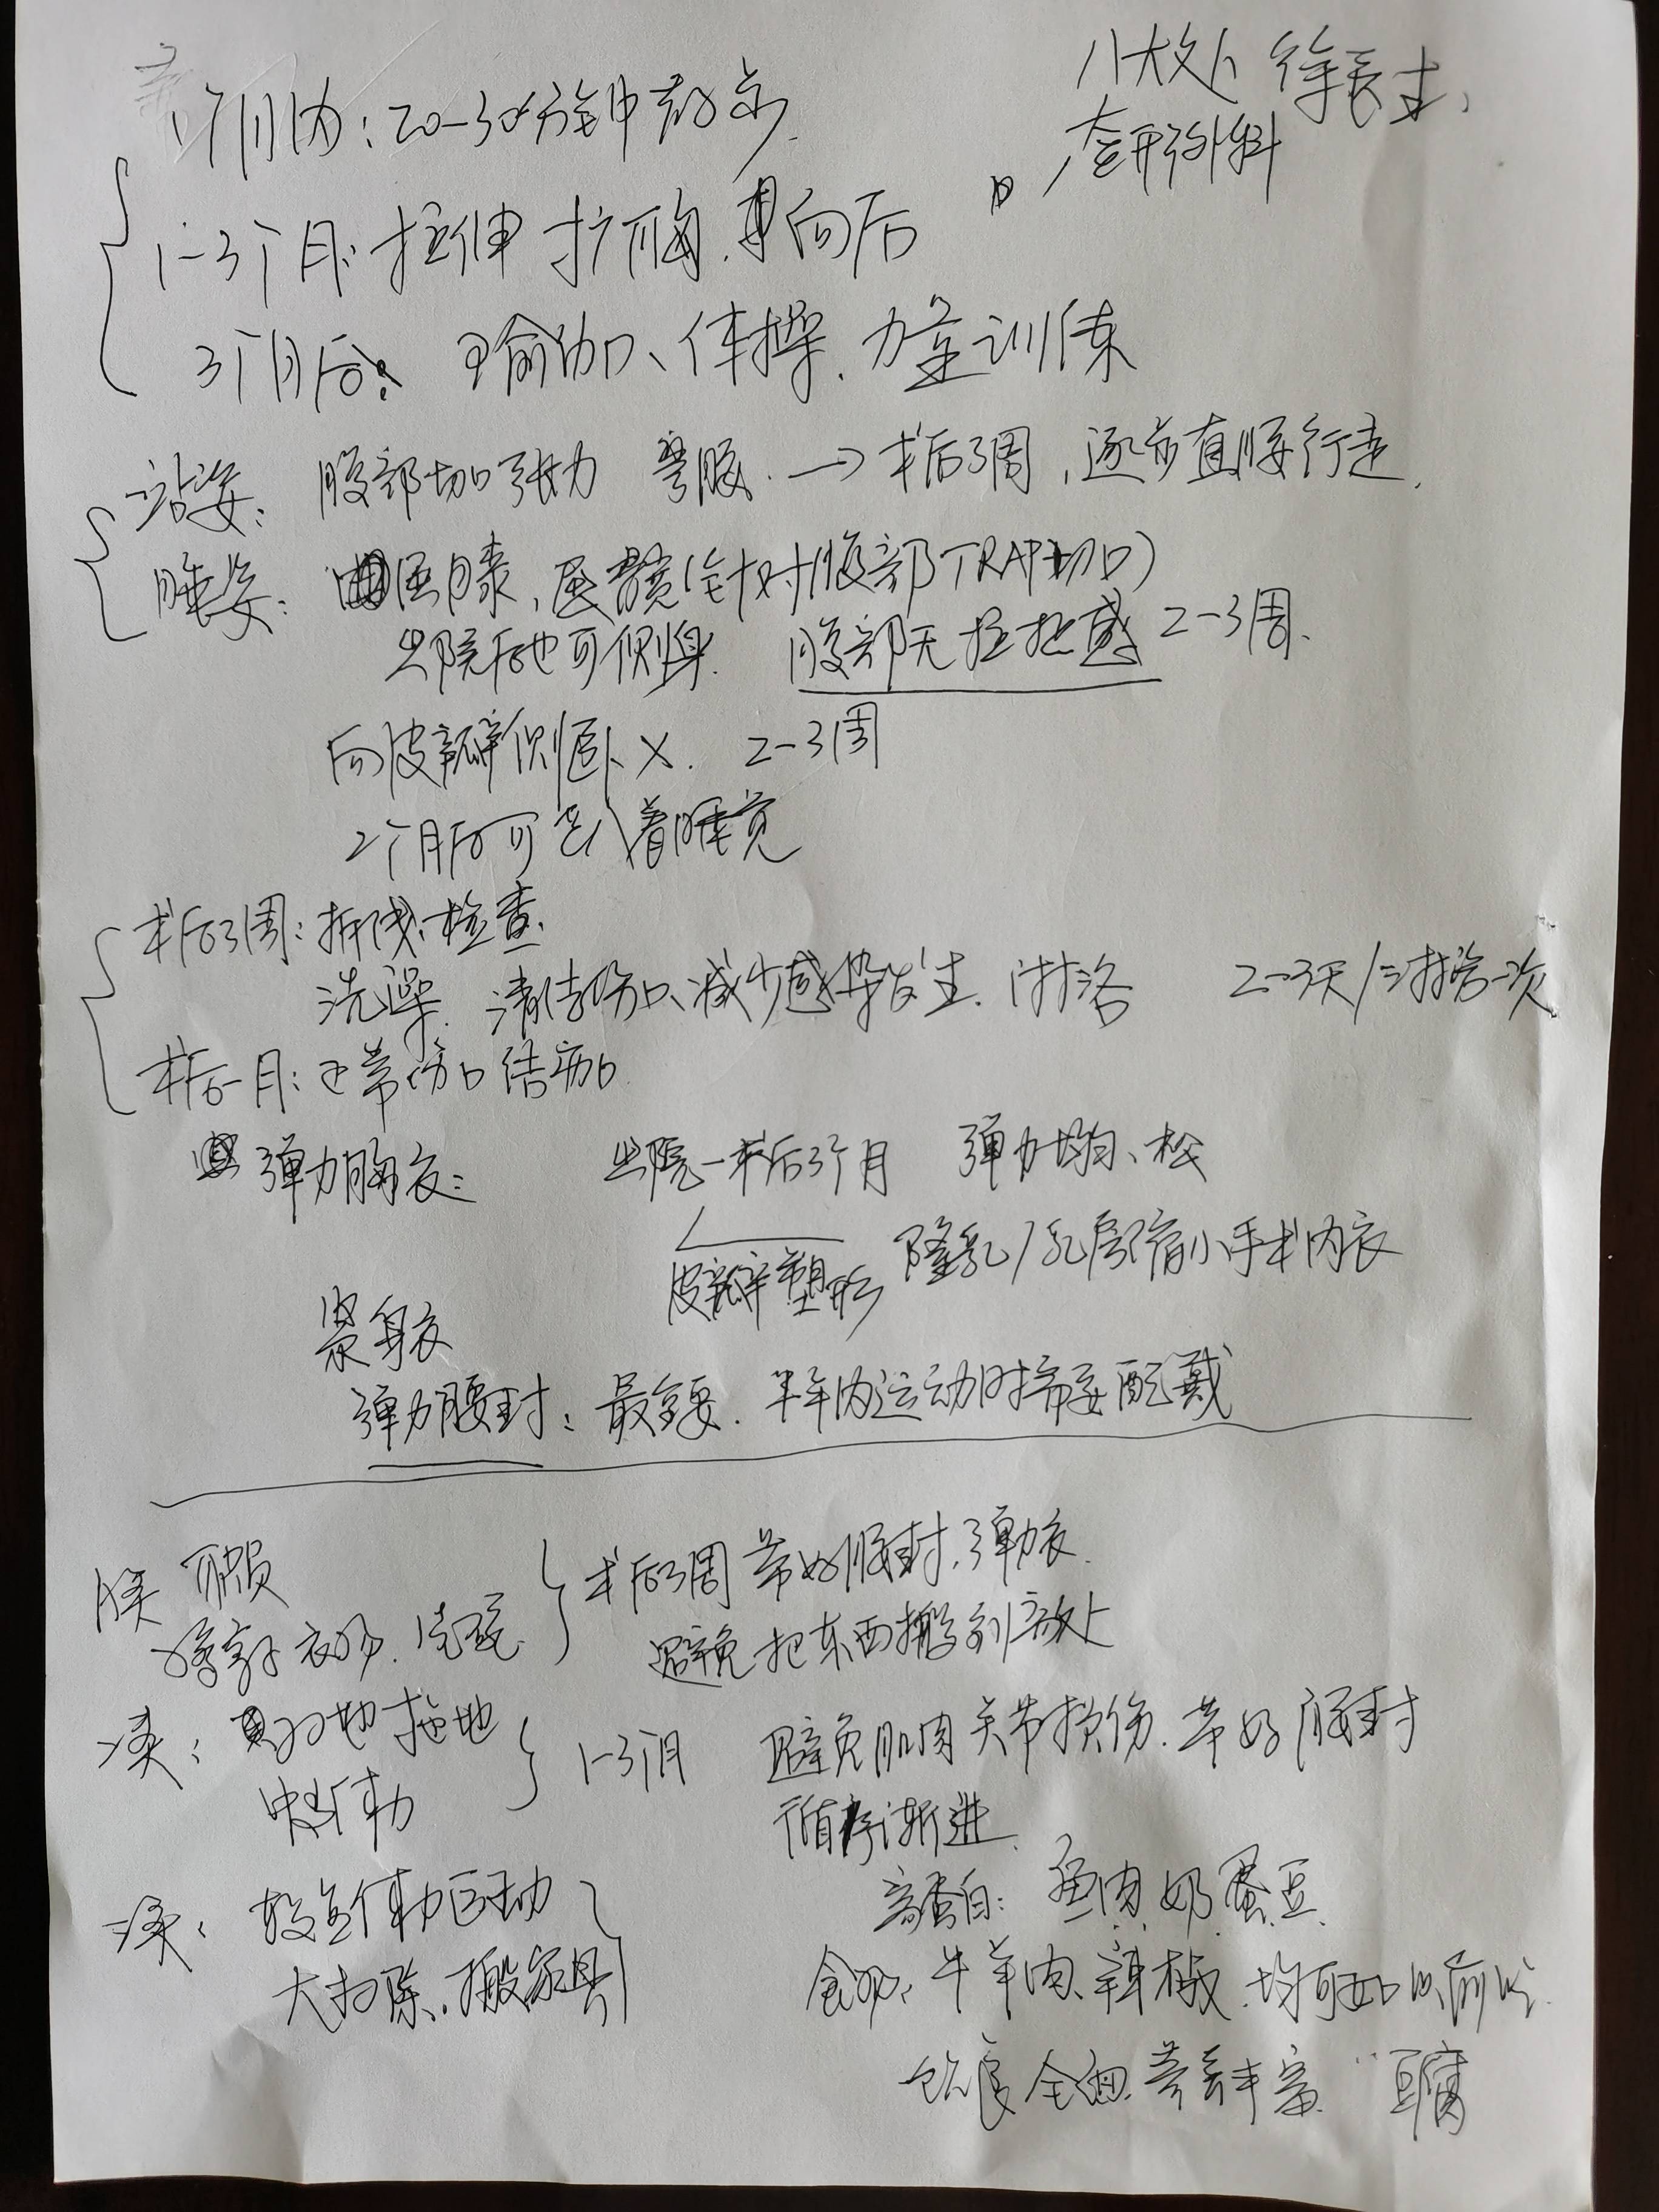 八大处 徐医生
整形外科
1个月内：20-30分钟散步
1-3个月：拉伸 扩胸.向后
3个月后：瑜伽、体操.力量训练
站姿：腹部切口张力 弯腰.→术后3周，逐步直腰行走.
睡姿：屈膝、屈髋（针对腹部TRAP切口）
出院后也可侧身. 腹部无拉扯感 2-3周.
向皮瓣侧卧×. 2-3周
2个月后可趴着睡觉
术后3周：拆线.检查.
洗澡. 清洁伤口、减少感染发生. 淋浴 2-3天/淋浴一次
术后一月：正常伤口结痂
弹力胸衣： 出院-术后3个月 弹力均匀、松
皮瓣塑形 隆乳/乳房缩小手术内衣
紧身衣
弹力腰封：最重要. 半年内运动时需要配戴
术后3周 带好腰封.弹力衣.
避免把东西搬到高处
扫地 拖地
1-3个月 避免肌肉关节损伤.带好腰封
循序渐进.
较重体力运动
大扫除、搬家具
高蛋白：鱼肉.奶.蛋.豆.
食物：牛羊肉、辣椒.均可如以前吃.
饮食全面.营养丰富. 豆腐